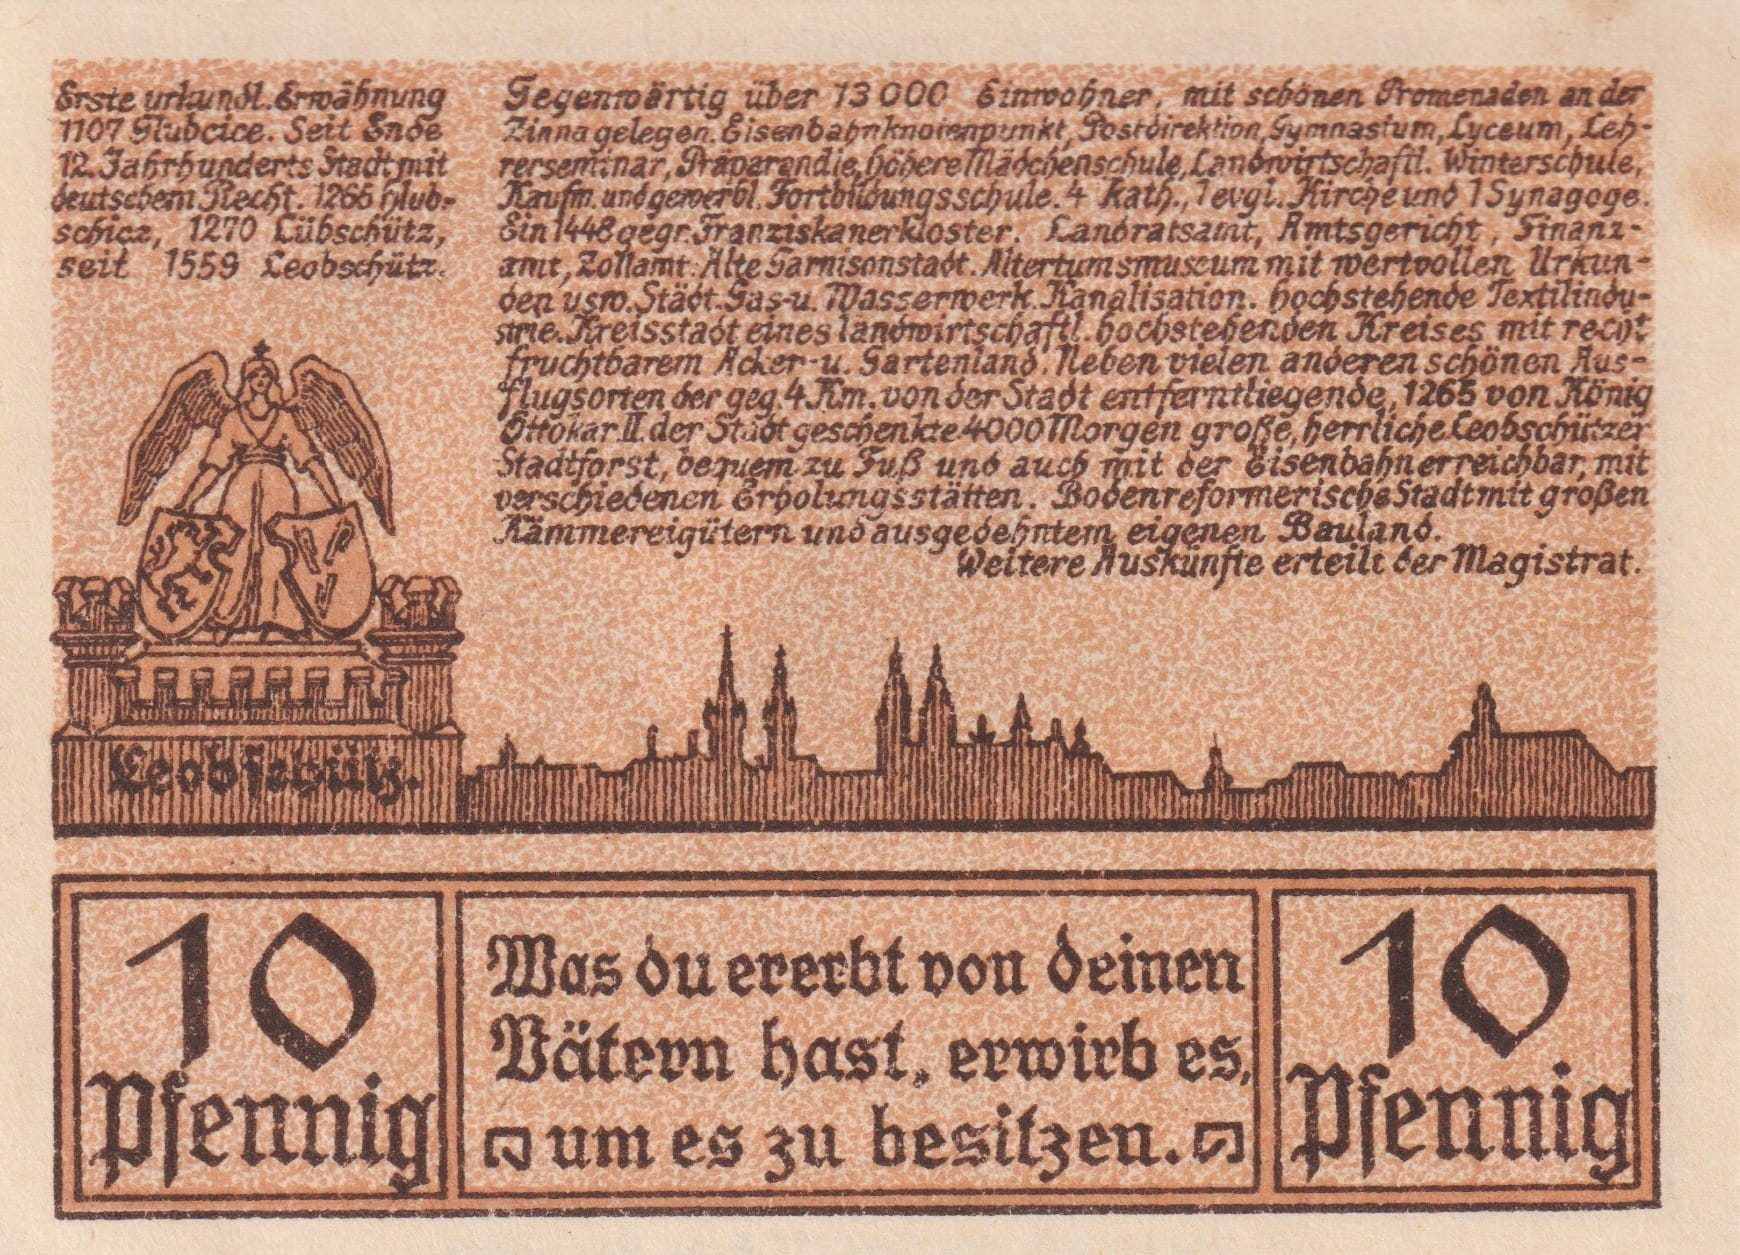 Erste urkundl. Erwähnung
1107 Glubcice. Seit Ende
12. Jahrhunderts Stadt mit
deutschem Recht. 1265 Hlub-
schicz, 1270 Lübschütz,
seit 1559 Leobschütz.
Gegenwärtig über 13000 Einwohner, mit schönen Promenaden an der
Zinna gelegen. Eisenbahnknotenpunkt, Postdirektion, Gymnasium, Lyceum, Leh-
rerseminar, Präparandie, höhere Mädchenschule, Landwirtschaftl. Winterschule,
Kaufm. und gewerbl. Fortbildungsschule. 4 kath., 1 evgl. Kirche und 1 Synagoge.
Ein 1448 gegr. Franziskanerkloster. Landratsamt, Amtsgericht, Finanz-
amt, Zollamt. Alte Garnisonstadt. Altertumsmuseum mit wertvollen Urkun-
den usw. Städt. Gas- u. Wasserwerk. Kanalisation. Hochstehende Textilindu-
strie. Kreisstadt eines landwirtschaftl. hochstehenden Kreises mit recht
fruchtbarem Acker- u. Gartenland. Neben vielen anderen schönen Aus-
flugsorten der geg. 4 Km. von der Stadt entferntliegende, 1265 von König
Ottokar II. der Stadt geschenkte 4000 Morgen große, herrliche Leobschützer
Stadtforst, bequem zu Fuß und auch mit der Eisenbahn erreichbar, mit
verschiedenen Erholungsstätten. Bodenreformerische Stadt mit großen
Kämmereigütern und ausgedehntem eigenen Bauland.
Weitere Auskünfte erteilt der Magistrat.
Leobschütz.
10
Pfennig
Was du ererbt von deinen
Vätern hast, erwirb es,
um es zu besitzen.
10
Pfennig